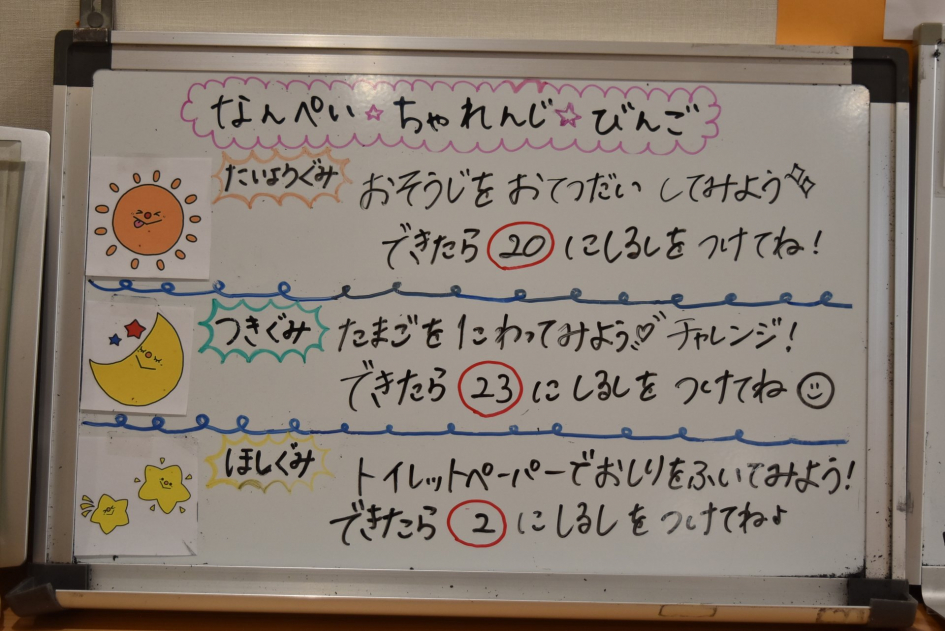 なんぺい☆ちゃれんじ☆びんご
たいようぐみ
おそうじを おてつだい してみよう
できたら 20 にしるしを つけてね!
つきぐみ
たまごを 1こわってみよう♡ チャレンジ!
できたら 23 に しるしを つけてね
ほしぐみ
トイレットペーパーでおしりをふいてみよう!
できたら 2 にしるしを つけてね♪